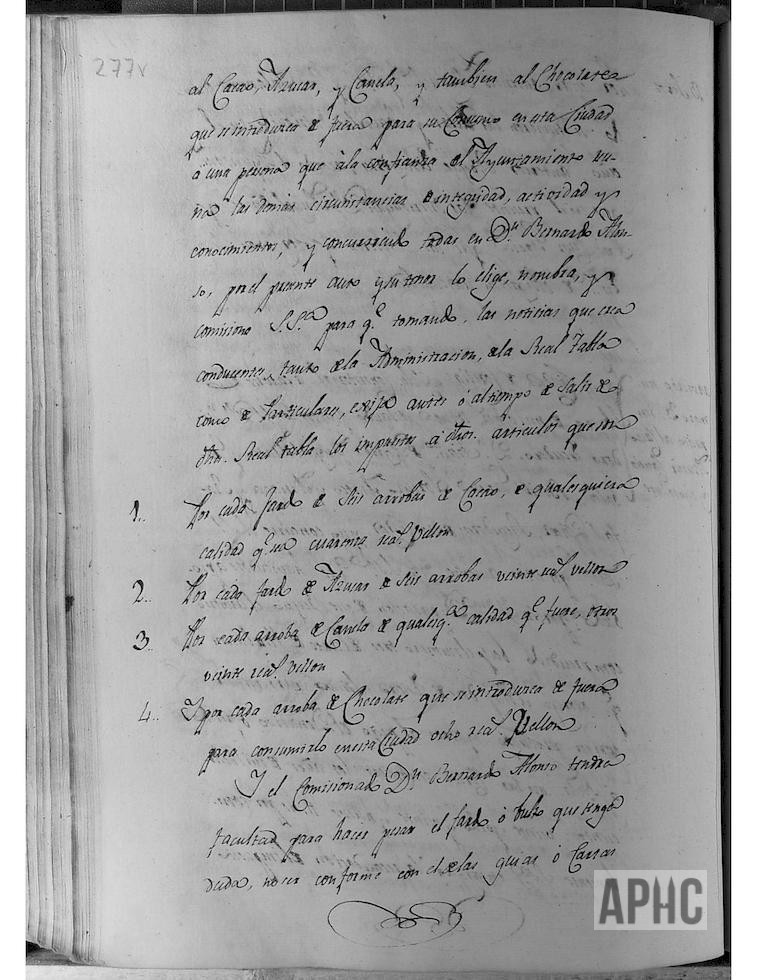 277v
al Cacao, Azucar, y Canela, y tambien al Chocolate
que se introdurca de fuera para su Consumo en esta Ciudad
a una persona que à la confianza del Ayuntamiento reu-
na las demas circunstancias de integridad, actividad y
conocimientos, y concurriendo todas en Dn. Bernardo Alon-
so, por el presente auto y su tenor lo elige, nombra, y
comisiona S.S.ª para q.e tomando las noticias que crea
conducentes, tanto de la Administracion, de la Real Tabla
como de Particulares, exija antes ó al tiempo de Salir de
dha. Real tabla los impuestos á dhos. articulos que son
1.. Por cada fardo de seis arrobas de Cacao, de qualesquiera
calidad q.e sea cuarenta rea.s vellon
2.. Por cada fardo de Azucar de seis arrobas veinte rea.s vellon
3.. Por cada arroba de Canela de qualesq.ª calidad q.e fuere, otros
veinte rea.s vellon
4.. Y por cada arroba de Chocolate que se introdurca de fuera
para consumirlo en esta Ciudad ocho rea.s Vellon
Y el Comisionado Dn. Bernardo Alonso tendra
facultad para hacer pesar el fardo ó bulto que tenga
duda, no ser conforme con el de las guias ó Cartas
APHC